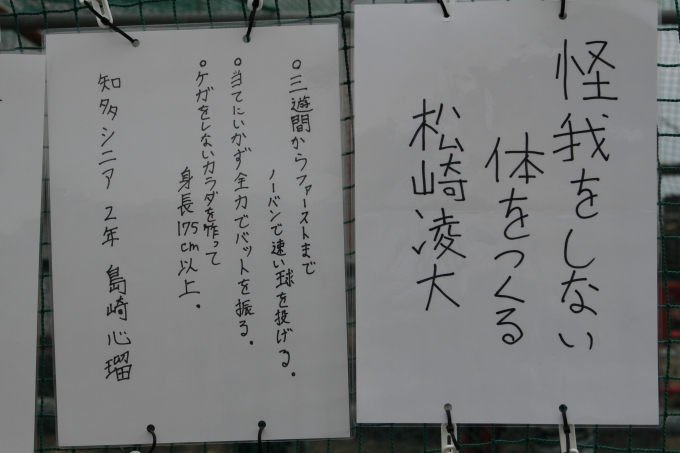 怪我をしない
体をつくる
松崎凌大
○三遊間からファーストまで
ノーバンで速い球を投げる。
○当てにいかず全力でバットを振る。
○ケガをしないカラダを作って
身長175cm以上。
知多シニア 2年 島崎心瑠